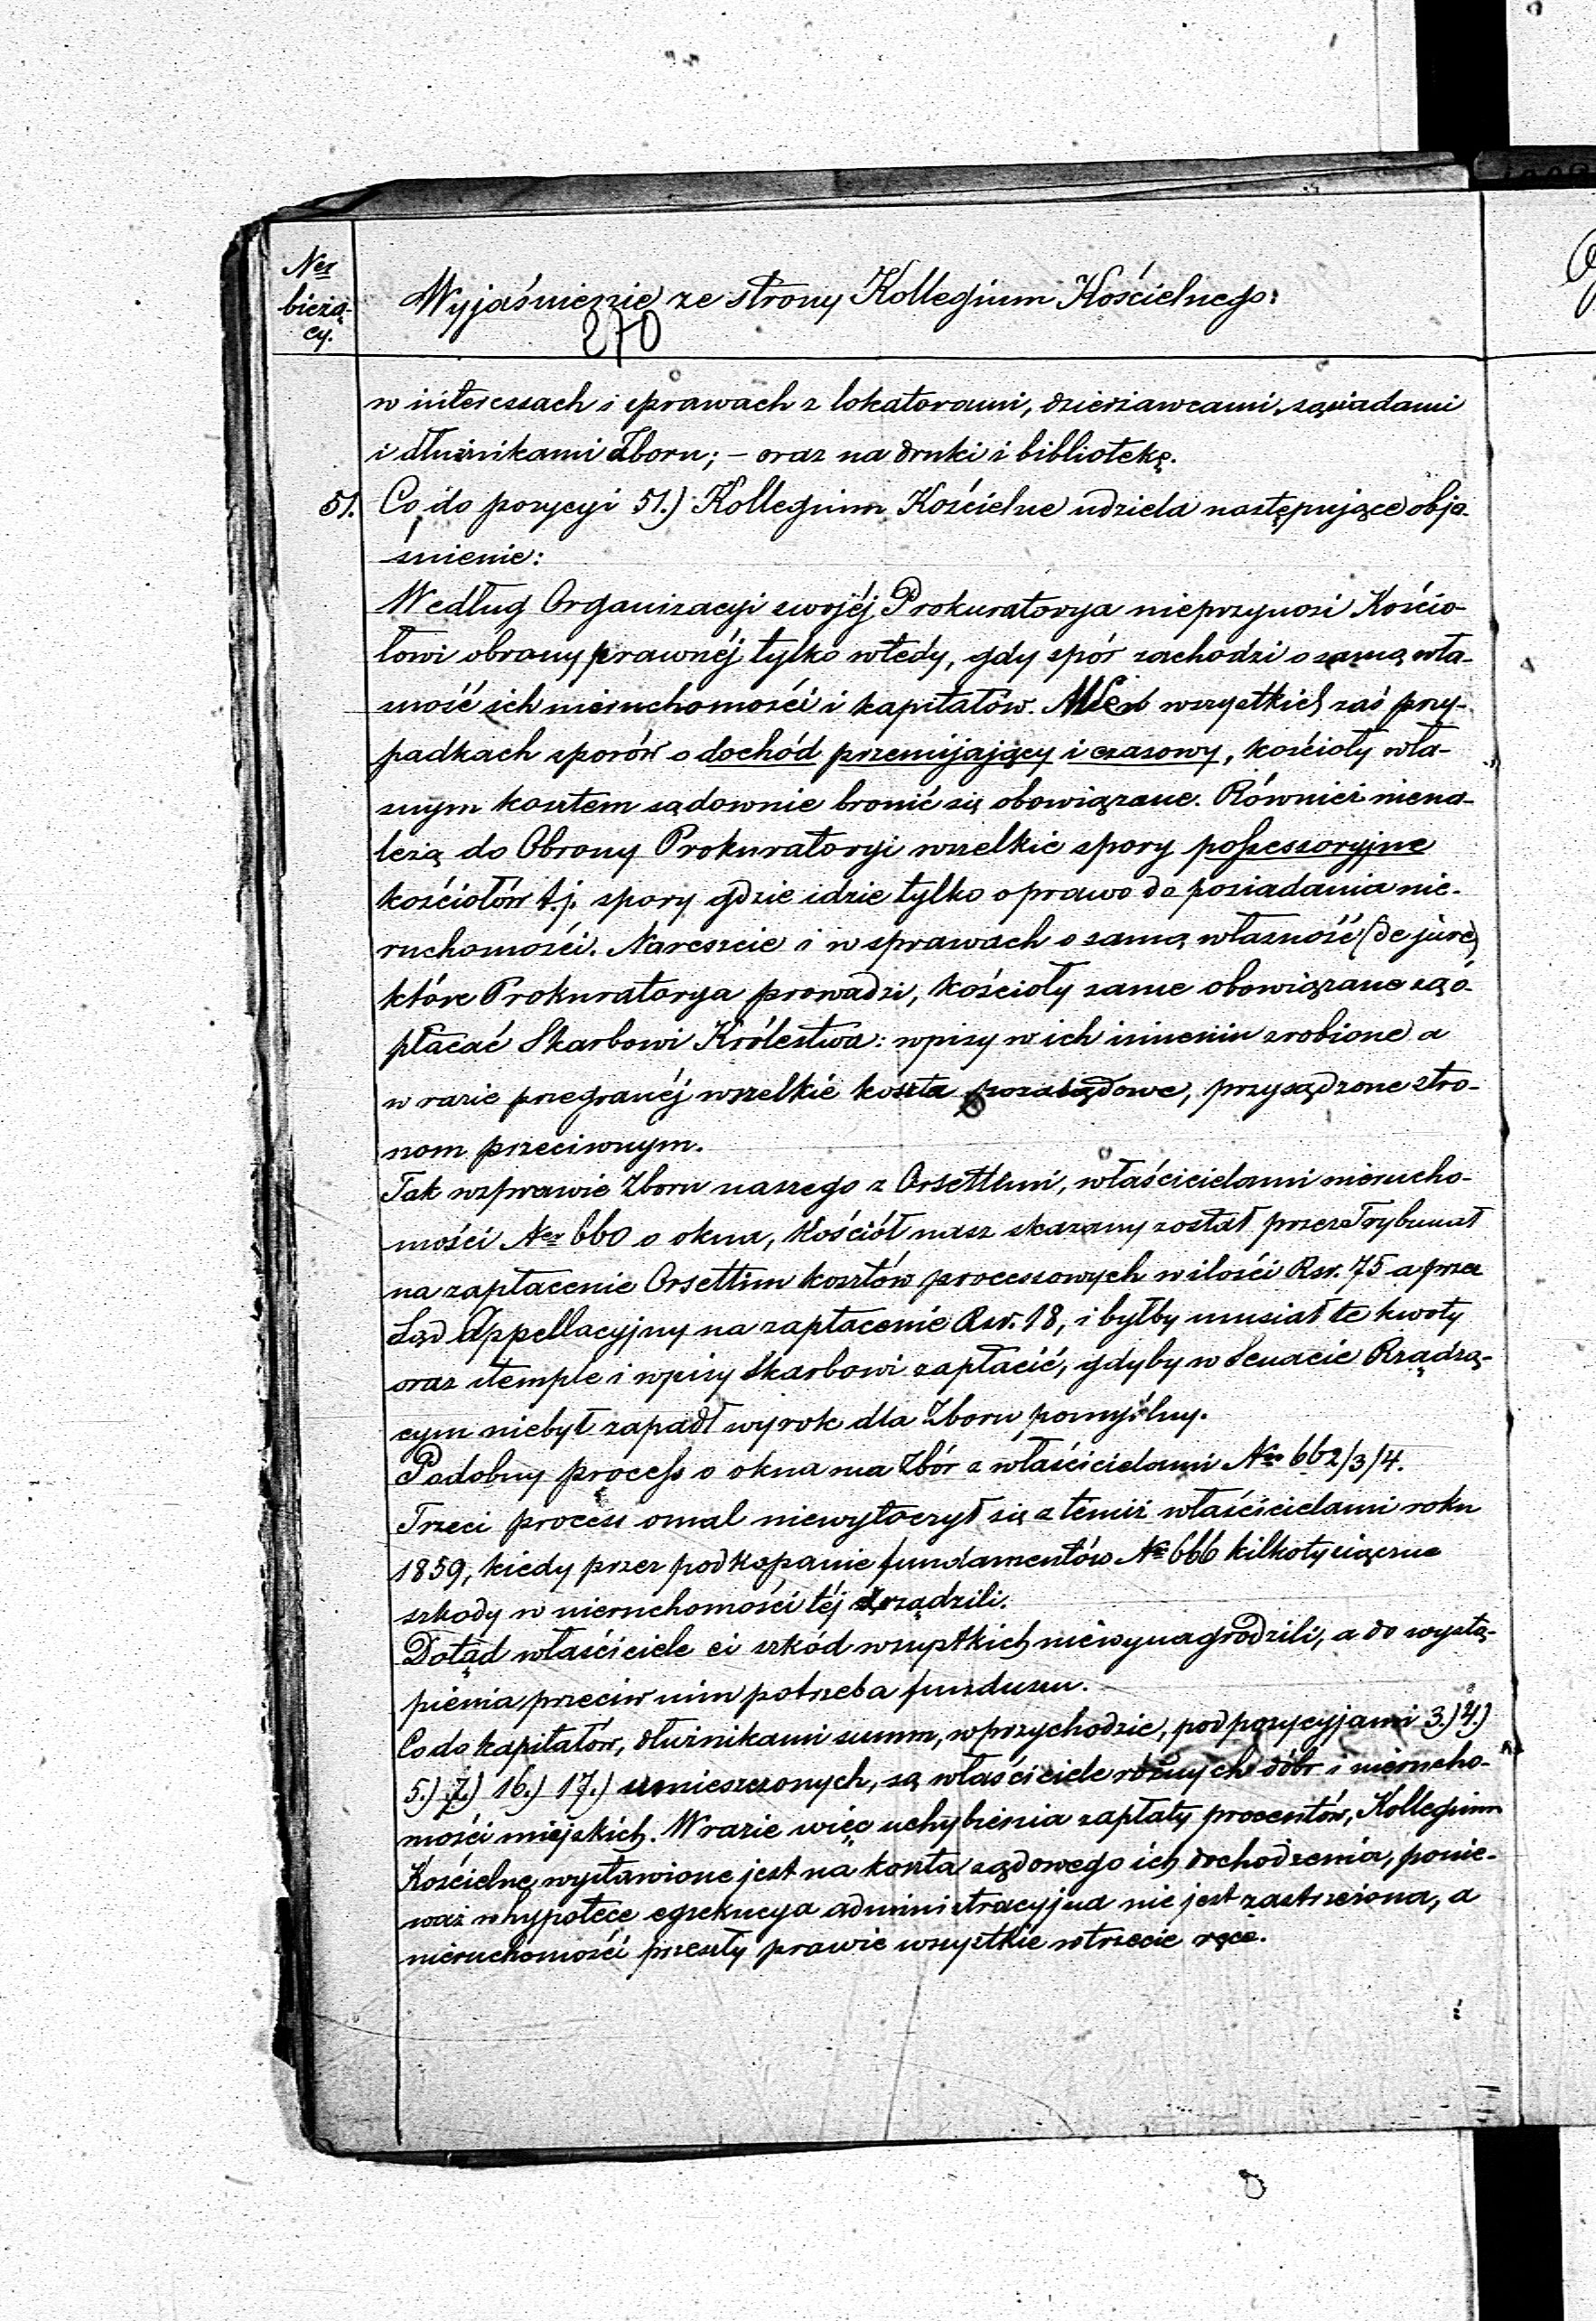 Ner
bieżą-
cy.
Wyjaśnienie ze strony Kollegium Kościelnego:
270
w interessach i sprawach z lokatorami, dzierżawcami, sąsiadami
i dłużnikami Zboru; – oraz na druki i bibliotekę.
51. Co do pozycyi 51.) Kollegium Kościelne udziela następujące obja-
śnienie:
Według Organizacyi swojéj Prokuratorya nieprzynosi Kościo-
łowi obrony prawnéj tylko wtedy, gdy spór zachodzi o samą wła-
sność ich nieruchomości i kapitałów. We wszystkich zaś przy-
padkach sporów o dochód przemijający i czasowy, kościoły wła-
snym kosztem sądownie bronić się obowiązane. Również niena-
leżą do Obrony Prokuratoryi wszelkie spory possessoryjne
kościołów t.j. spory gdzie idzie tylko o prawo do posiadania nie-
ruchomości. Nareszcie i w sprawach o samą własność (de jure)
które Prokuratorya prowadzi, kościoły same obowiązane są o-
płacać Skarbowi Królestwa: wpisy w ich imieniu zrobione a
w razie przegranéj wszelkie koszta pozasądowe, przysądzone stro-
nom przeciwnym.
Tak w sprawie Zboru naszego z Orsettimi, właścicielami nierucho-
mości Ner 660 o okna, Kościół nasz skazany został przez Trybunał
na zapłacenie Orsettim kosztów processowych w ilości Rsr. 75 a przez
Sąd Appellacyjny na zapłacenie Rsr. 18, i byłby musiał te kwoty
oraz stemple i wpisy Skarbowi zapłacić, gdyby w Senacie Rządzą-
cym niebył zapadł wyrok dla Zboru pomyślny.
Podobny process o okna ma Zbór z właścicielami Nro 662/3/4.
Trzeci process omal niewytoczył się z temiż właścicielami roku
1859, kiedy przez podkopanie fundamentów No 666 kilkotysiączne
szkody w nieruchomości téj zrządzili.
Dotąd właściciele ci szkód wszystkich niewynagrodzili, a do wystą-
pienia przeciw nim potrzeba funduszu.
Co do kapitałów, dłużnikami summ, w przychodzie, pod pozycyjami 3.) 4.)
5.) 7.) 16.) 17.) umieszczonych, są właściciele różnych dóbr i nierucho-
mości miejskich. W razie więc uchybienia zapłaty procentów, Kollegium
Kościelne wystawione jest na koszta sądowego ich dochodzenia, ponie-
waż w hypotece egzekucya administracyjna nie jest zastrzeżona, a
nieruchomości przeszły prawie wszystkie w trzecie ręce.